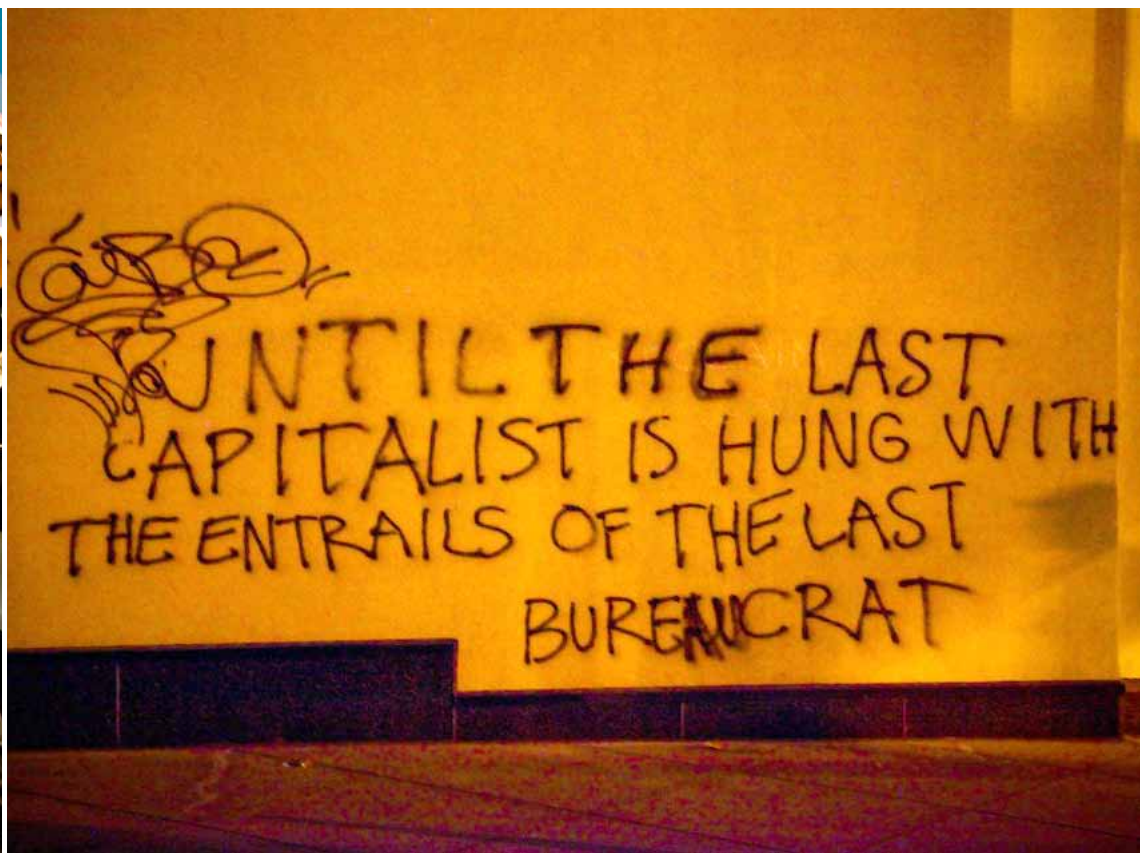 UNTIL THE LAST
CAPITALIST IS HUNG WITH
THE ENTRAILS OF THE LAST
BUREAUCRAT